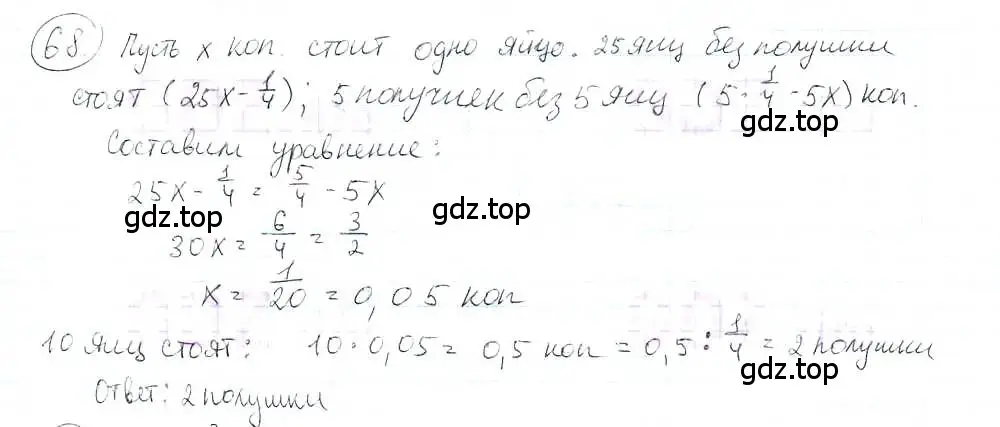 68 Пусть x коп. стоит одно яйцо. 25 яиц без полушки
стоят (25x - 1/4); 5 полушек без 5 яиц (5 · 1/4 - 5x) коп.
gdz.top
Составим уравнение:
25x - 1/4 = 5/4 - 5x
gdz.top gdz.top
30x = 6/4 = 3/2
x = 1/20 = 0,05 коп
10 яиц стоят: 10 · 0,05 = 0,5 коп = 0,5 : 1/4 = 2 полушки
gdz.top gdz.top
Ответ: 2 полушки